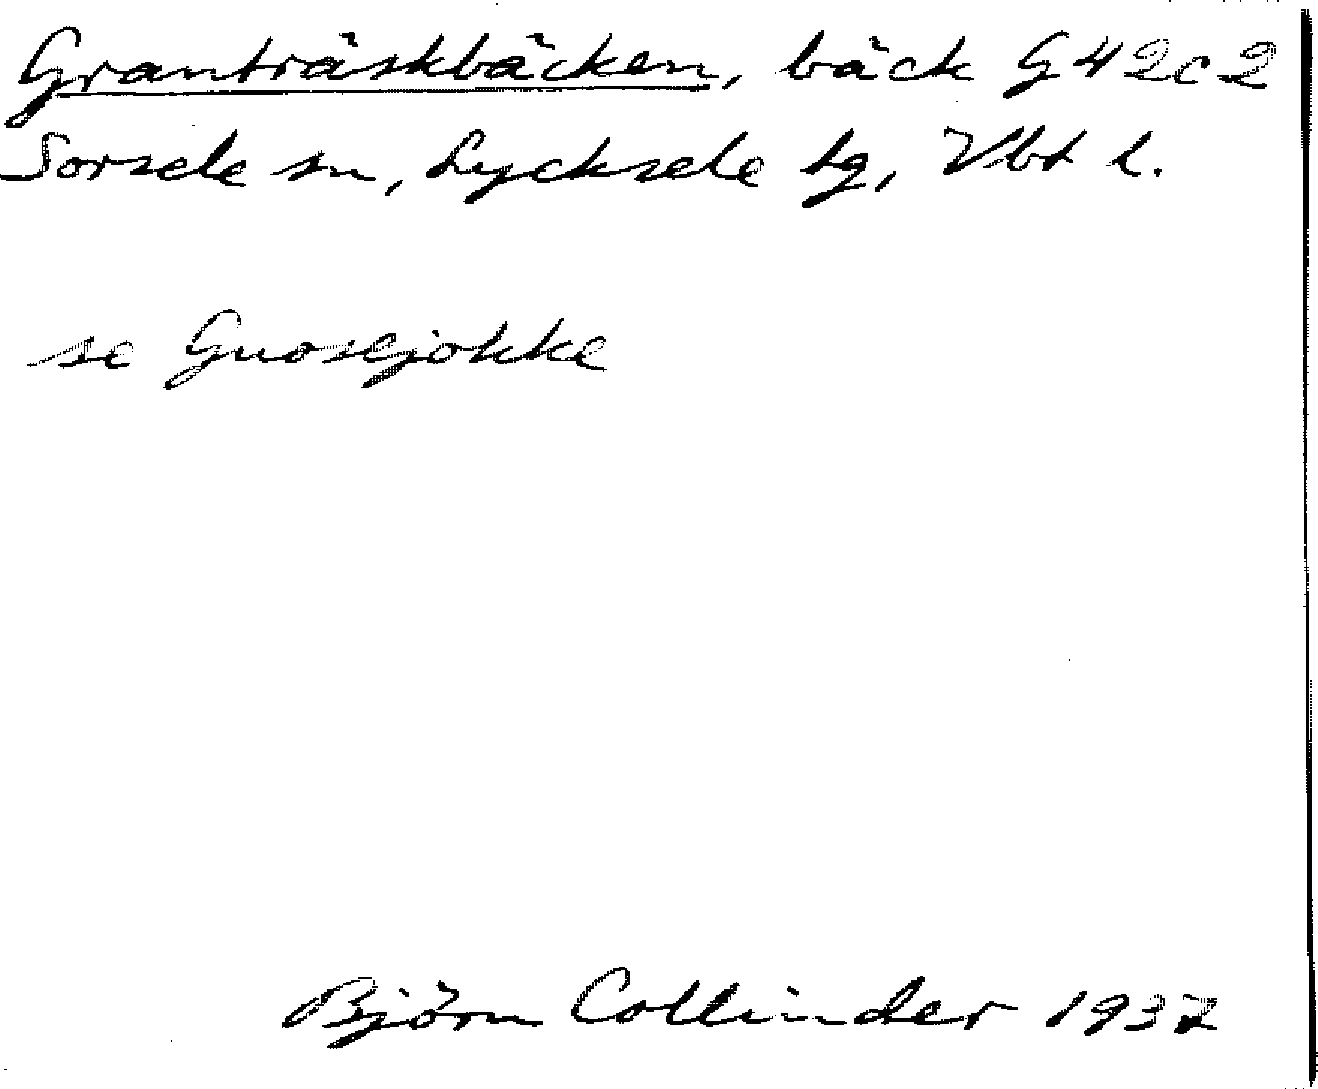 Granträskbäcken, bäck G42c2
Sorsele sn, Lycksele tg, Vbt l.
se Guosejokke
Björn Collinder 1937